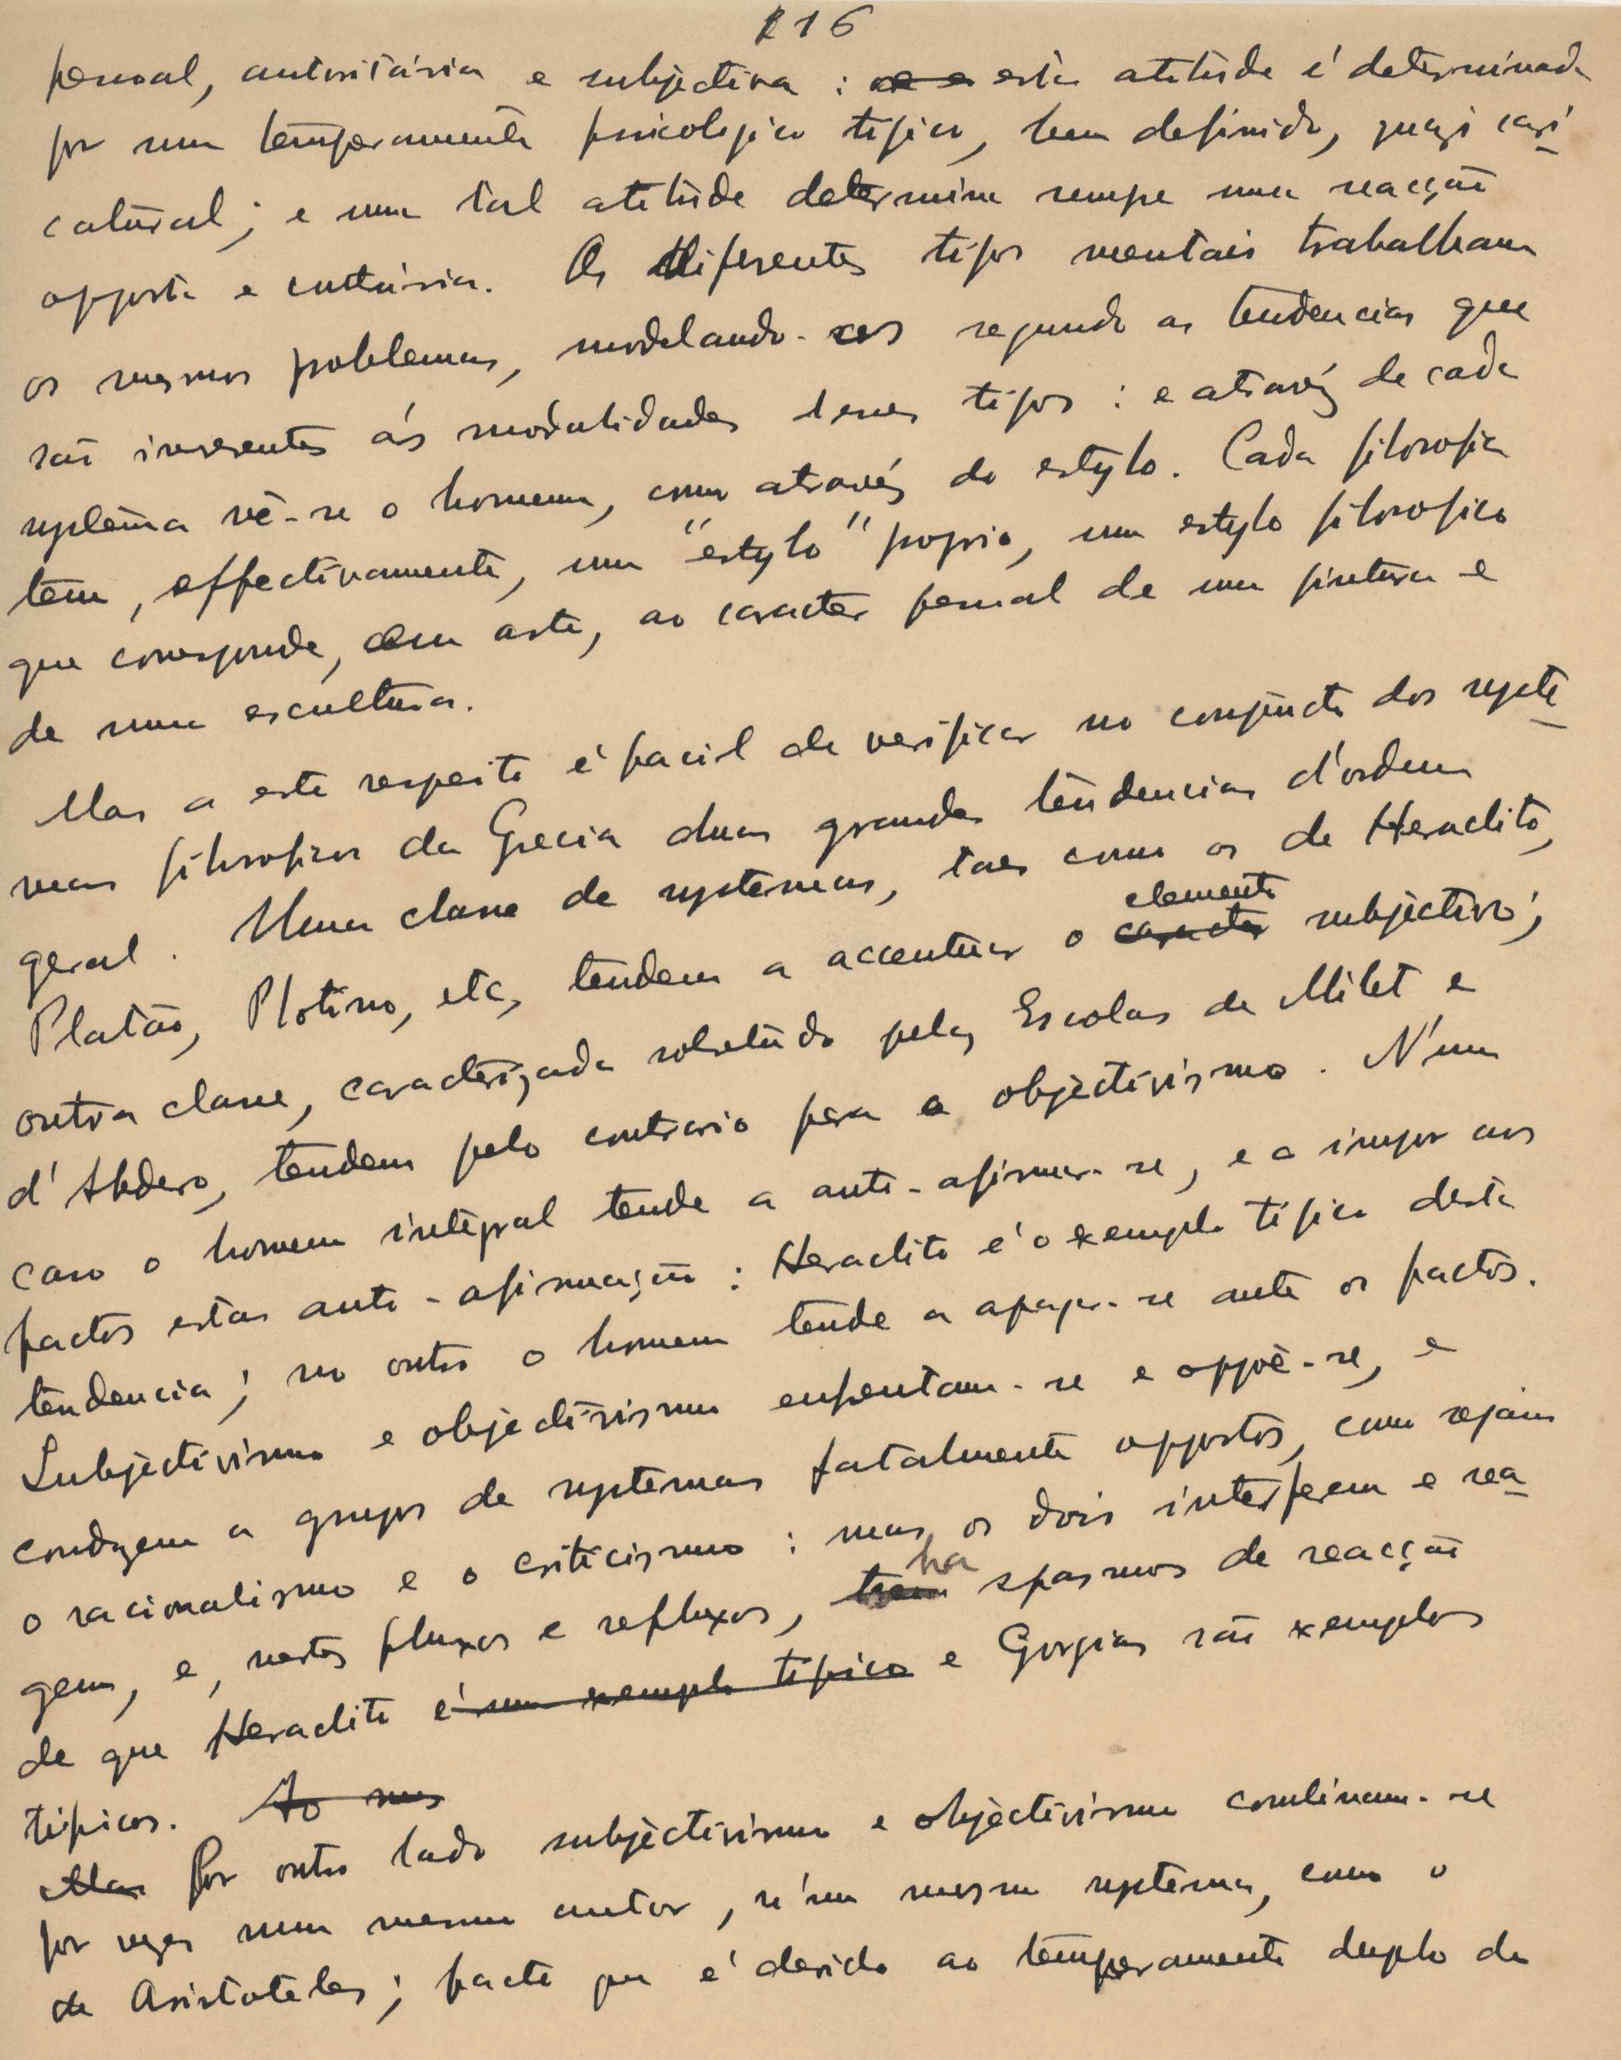 116
pessoal, autoritária e subjectiva : esta atitude é determinada
por um temperamento psicologico tipico, bem definido, quazi cari-
catural; e uma tal atitude determina sempre uma reacção
opposta e contrária. Os diferentes tipos mentais trabalham
os mesmos problemas, modelando-os segundo as tendencias que
são inerentes ás modalidades desses tipos : e através de cada
systema vê-se o homem, como através do estylo. Cada filosofia
tem, effectivamente, um "estylo" proprio, um estylo filosofico
que corresponde, em arte, ao caracter pessoal de uma pintura e
de uma escultura.
Mas a este respeito é facil de verificar no conjuncto dos syste-
mas filosoficos da Grecia duas grandes tendencias d'ordem
geral. Uma classe de systemas, taes como os de Heraclito,
Platão, Plotino, etc, tendem a accentuar o caracter elemento subjectivo;
outra classe, caracterizada sobretudo pelas Escolas de Milet e
d'Abdera, tendem pelo contrario para o objectivismo. N'um
caso o homem integral tende a auto-afirmar-se, e a impor aos
factos estas auto-afirmação : Heraclito é o exemplo tipico desta
tendencia; no outro o homem tende a apagar-se ante os factos.
Subjectivismo e objectivismo enfrentam-se e oppõe-se, e
conduzem a grupos de systemas fatalmente oppostos, como sejam
o racionalismo e o criticismo : mas os dois interferem e rea-
gem, e, nestes fluxos e refluxos, ha spasmos de reacção
de que Heraclito é um exemplo tipico e Gorgias são exemplos
tipicos. Ao mes
Mas Por outro lado subjectivismo e objectivismo combinam-se
por vezes num mesmo autor, n'um mesmo systema, como o
de Aristoteles; facto que é devido ao temperamento duplo do